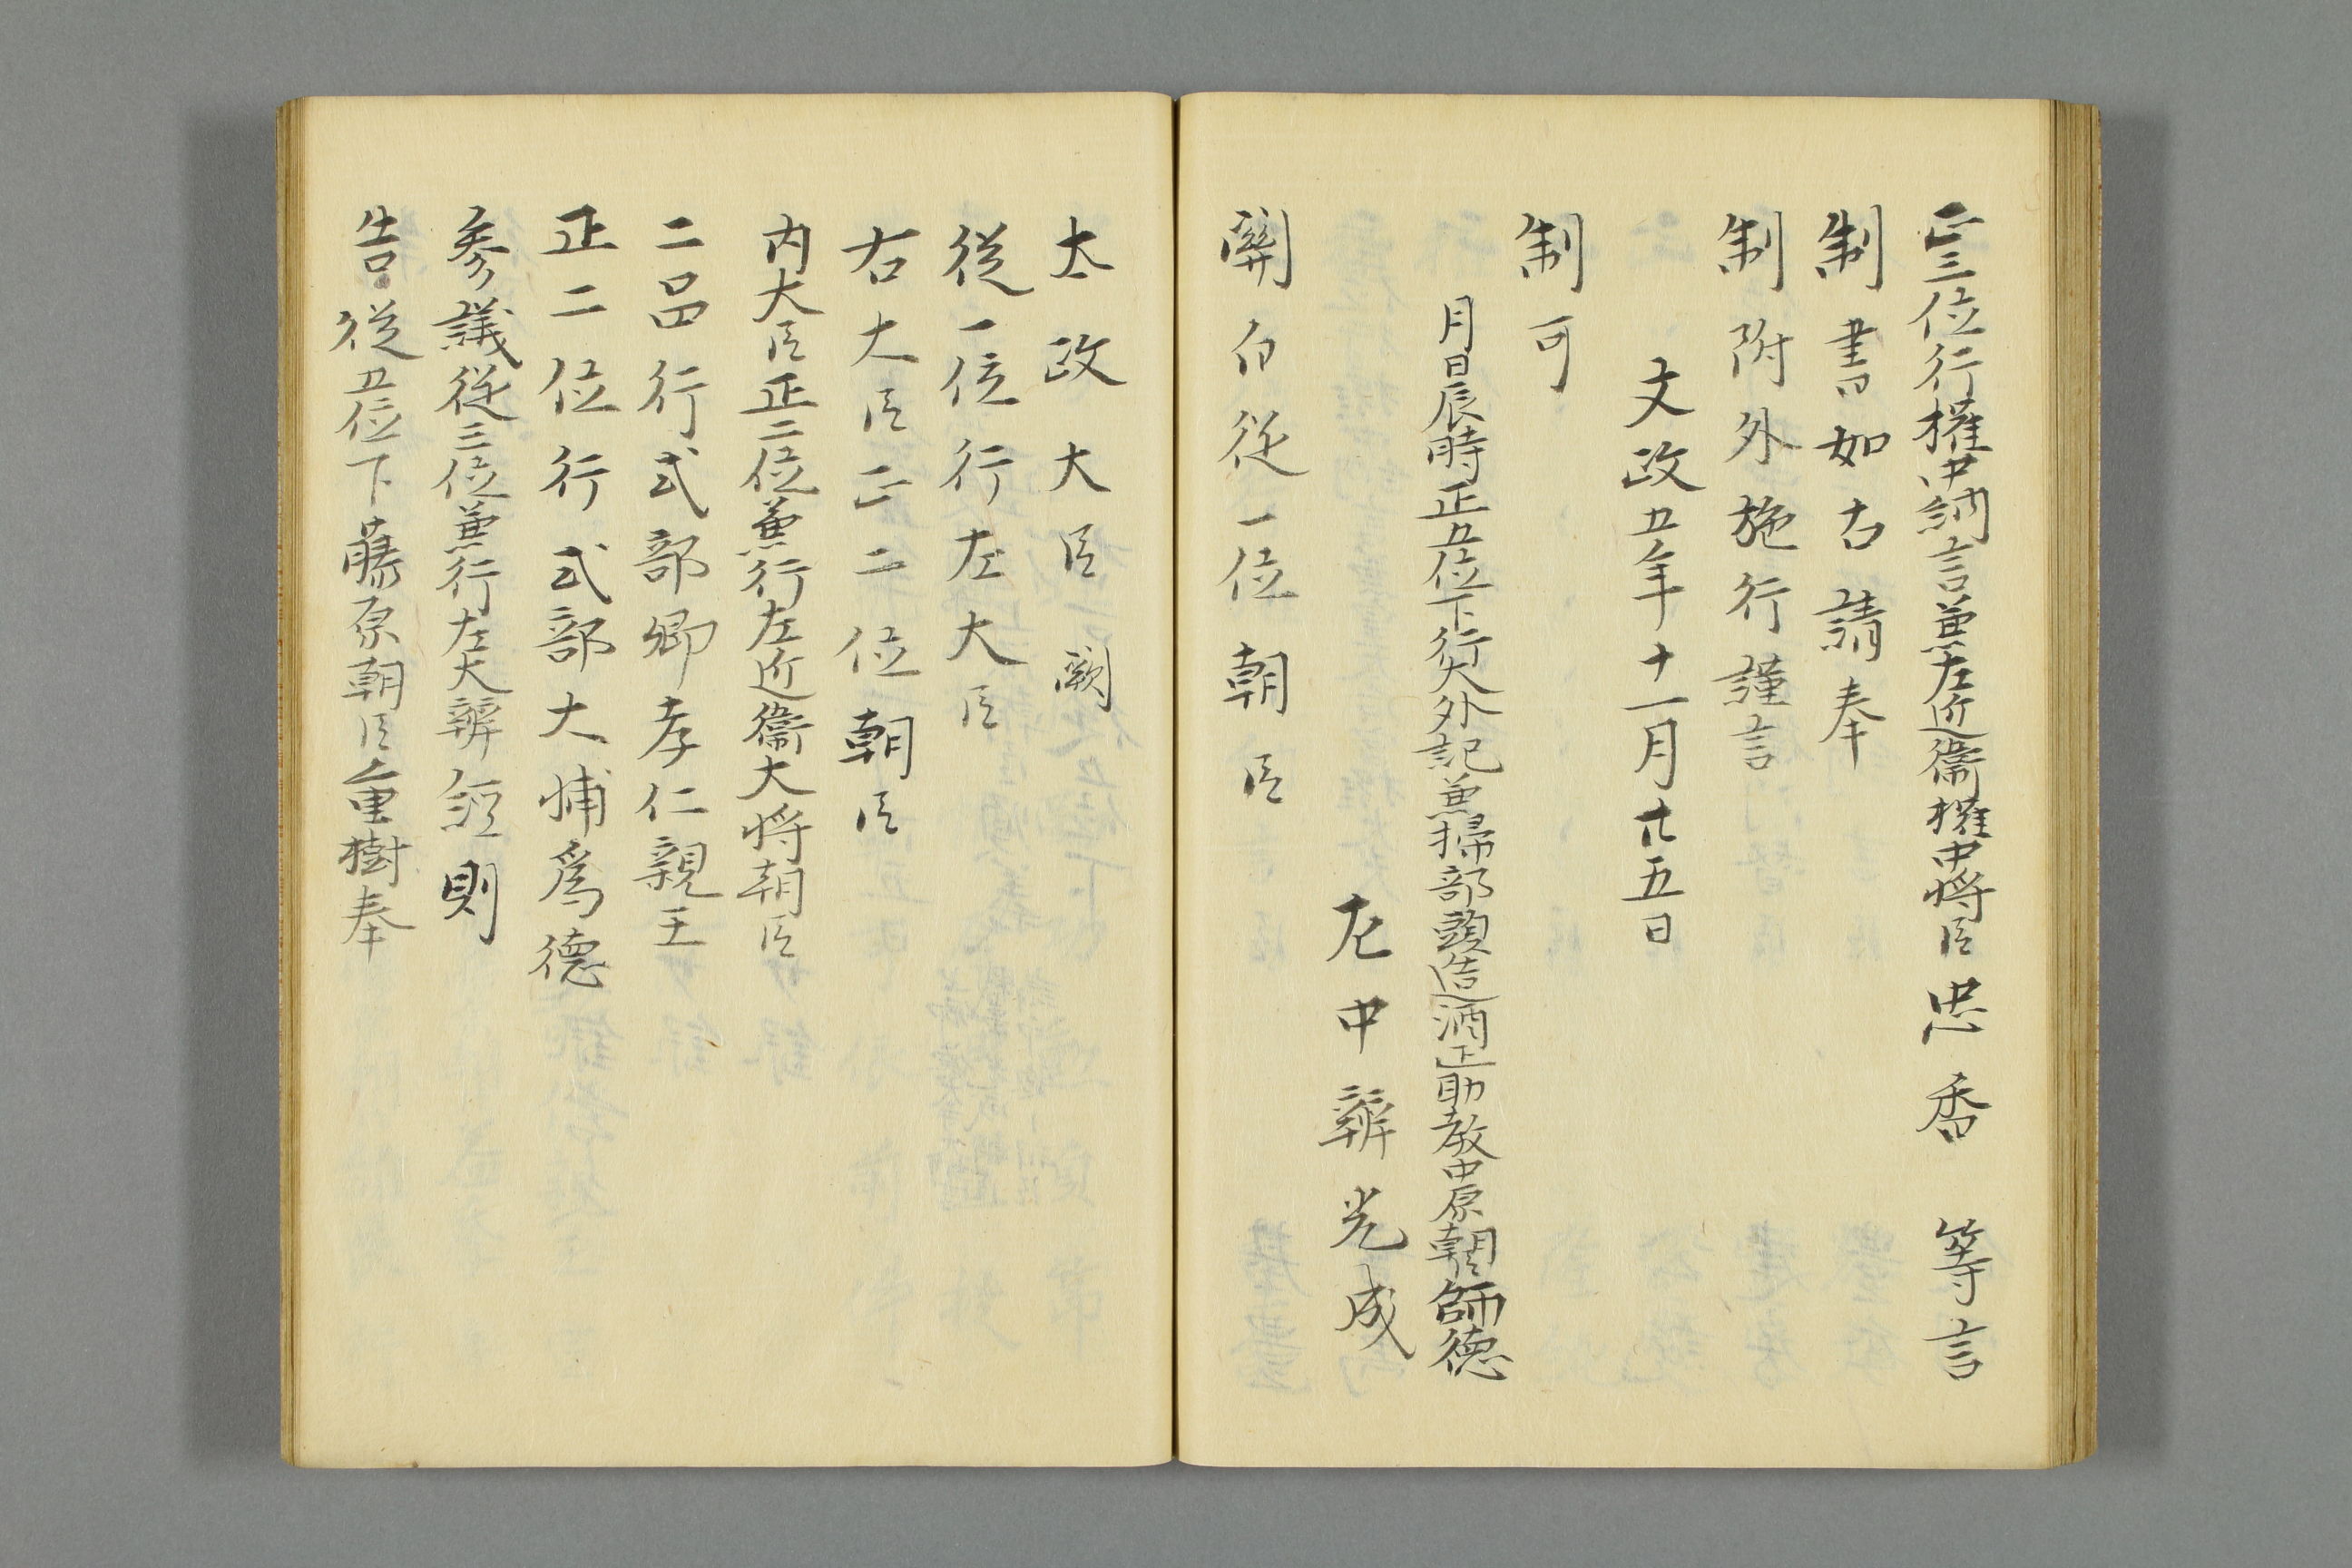 正三位行権中納言兼左近衛権中将臣忠香等言
制書如右請奉
制附外施行謹言
文政五年十一月廿五日
制可
月日辰時正五位下行大外記兼掃部頭造酒正助教中原朝臣師徳
左中辨光成
關白従一位朝臣
太政大臣闕
従一位行左大臣
右大臣正二位朝臣
内大臣正二位兼行左近衛大将朝臣
二品行式部卿孝仁親王
正二位行式部大輔為徳
参議従三位兼行左大辨經則
告従五位下藤原朝臣重樹奉